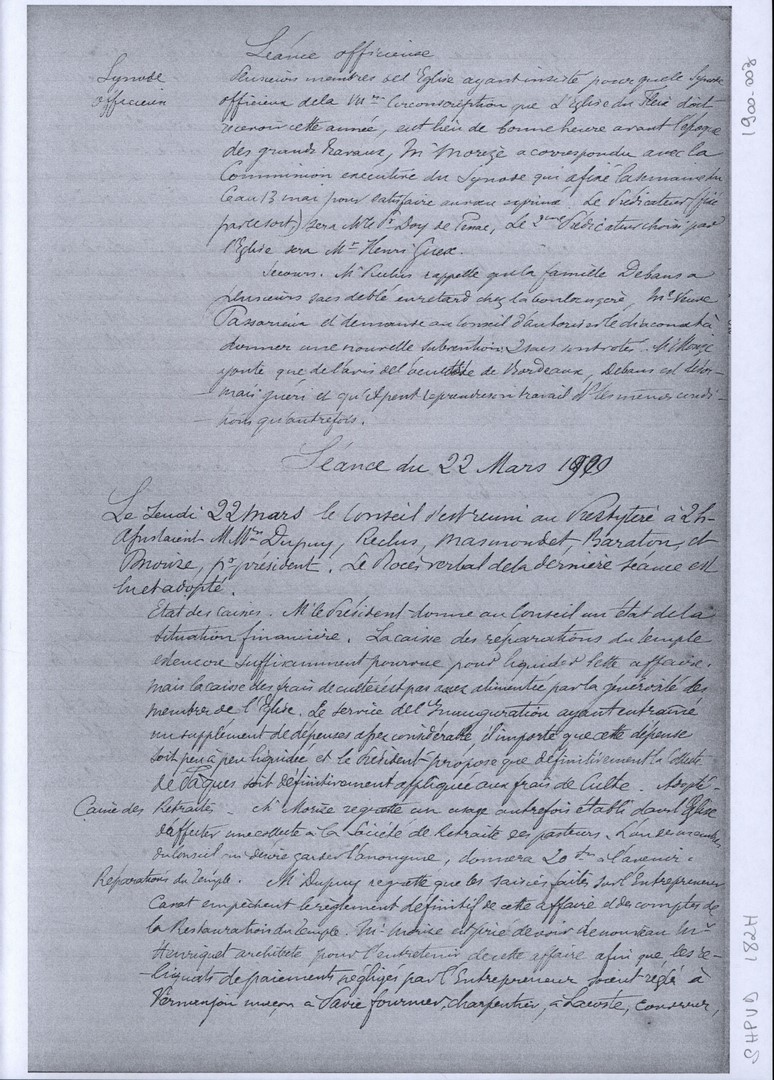 Séance officieuse
Synode officieux
Plusieurs membres de l'Eglise ayant insisté pour que le Synode
officieux de la VIme Circonscription que l'Eglise du Fleix doit
recevoir cette année, eut lieu de bonne heure avant l'époque
des grands travaux, Mr Morize a correspondu avec la
Commission exécutive du Synode qui a fixé la semaine du
au 13 mai pour satisfaire au vœu exprimé. Le Prédicateur (fixé
par le sort) sera Mr le Pr Doy de Pinac, Le 2me Prédicateur choisi par
l'Eglise sera Mr Henri
Secours. Mr Reclus rappelle que la famille Debans a
plusieurs sacs de blé en retard chez la boulangère, Me Veuve
et demande au Conseil d'autoriser le diaconat à
donner une nouvelle subvention. 2 sacs sont votés. Mr Morize
ajoute que de l'avis de l'oculiste de Bordeaux, Debans est désor-
mais guéri et qu'il peut reprendre son travail ds les mêmes condi-
tions qu'autrefois.
Séance du 22 Mars 1900
Le Jeudi 22 mars le Conseil s'est réuni au Presbytère à 2 h
Assistaient M.Mrs Dupuy, Reclus, Masmondet, Baraton, et
Morize, pr président. Le Procès verbal de la dernière séance est
lu et adopté.
Etat des caisses. Mr le Président donne au Conseil un état de la
situation financière. La caisse des réparations du temple
est encore suffisamment pourvue pour liquider cette affaire.
mais la caisse des frais de culte n'est pas assez alimentée par la générosité des
membres de l'Eglise. Le service de l'Inauguration ayant entraîné
un supplément de dépenses assez considérable il importe que cette dépense
soit peu à peu liquidée et le Président propose que définitivement la Collecte
de Pâques soit définitivement appliquée aux frais de Culte. Adopté
Caisse des Retraités. Mr Morize regrette un usage autrefois établi dans l'Eglise
d'affecter une collecte à la Société de Retraite des pasteurs. L'un des membres
du Conseil qui désire garder l'anonyme, donnera 20 frs à l'avenir.
Réparations du Temple. Mr Dupuy regrette que les saisies faites sur l'Entrepreneur
Carat empêchent le règlement définitif de cette affaire et des comptes de
la Restauration du Temple. Mr Morize est prié de voir de nouveau Mr
Henriquet architecte pour l'entretenir de cette affaire afin que les re-
liquats de paiements négligés par l'Entrepreneur soient réglés à
maçon à Fournier, charpentier, à Lacoste, couvreur,
1900-008
H281
SHPVD